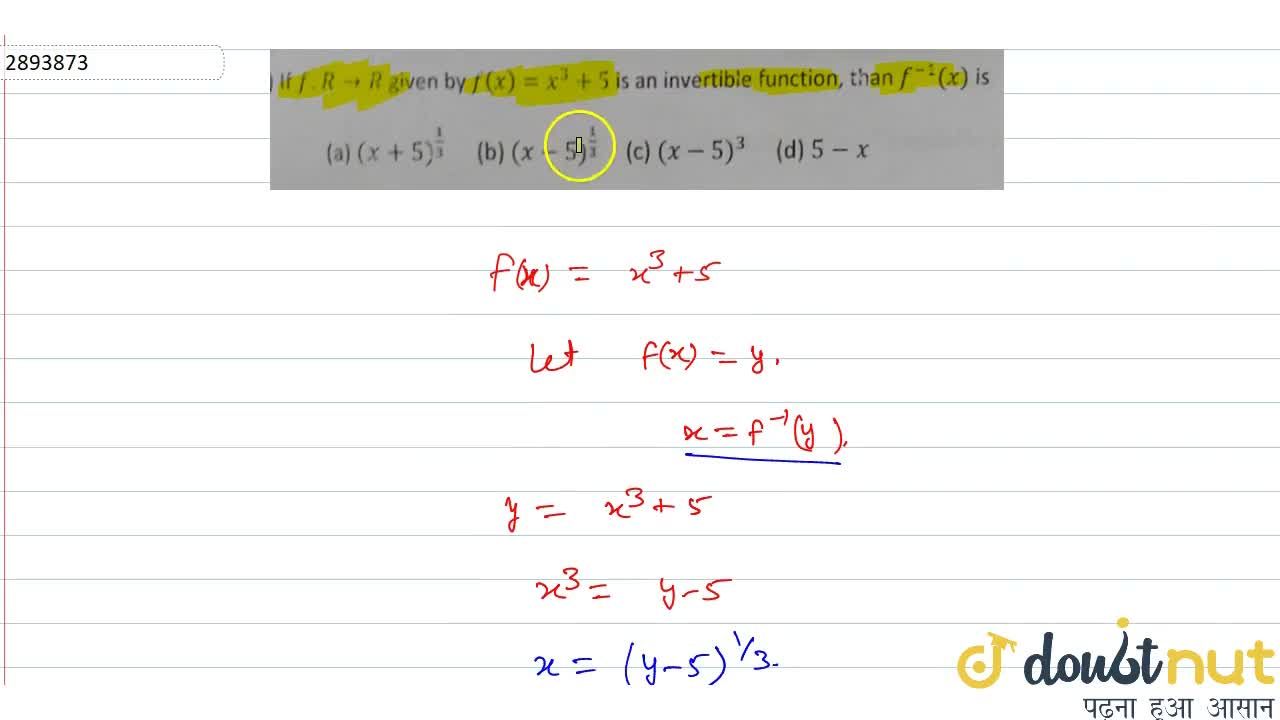 2893873
) If f: R → R given by f(x) = x³ + 5 is an invertible function, than f⁻¹(x) is
(a) (x + 5)^(1/3) (b) (x − 5)^(1/3) (c) (x − 5)³ (d) 5 − x
f(x) = x³ + 5
Let f(x) = y.
x = f⁻¹(y).
y = x³ + 5
x³ = y − 5
x = (y − 5)^(1/3).
doubtnut
पढ़ना हुआ आसान